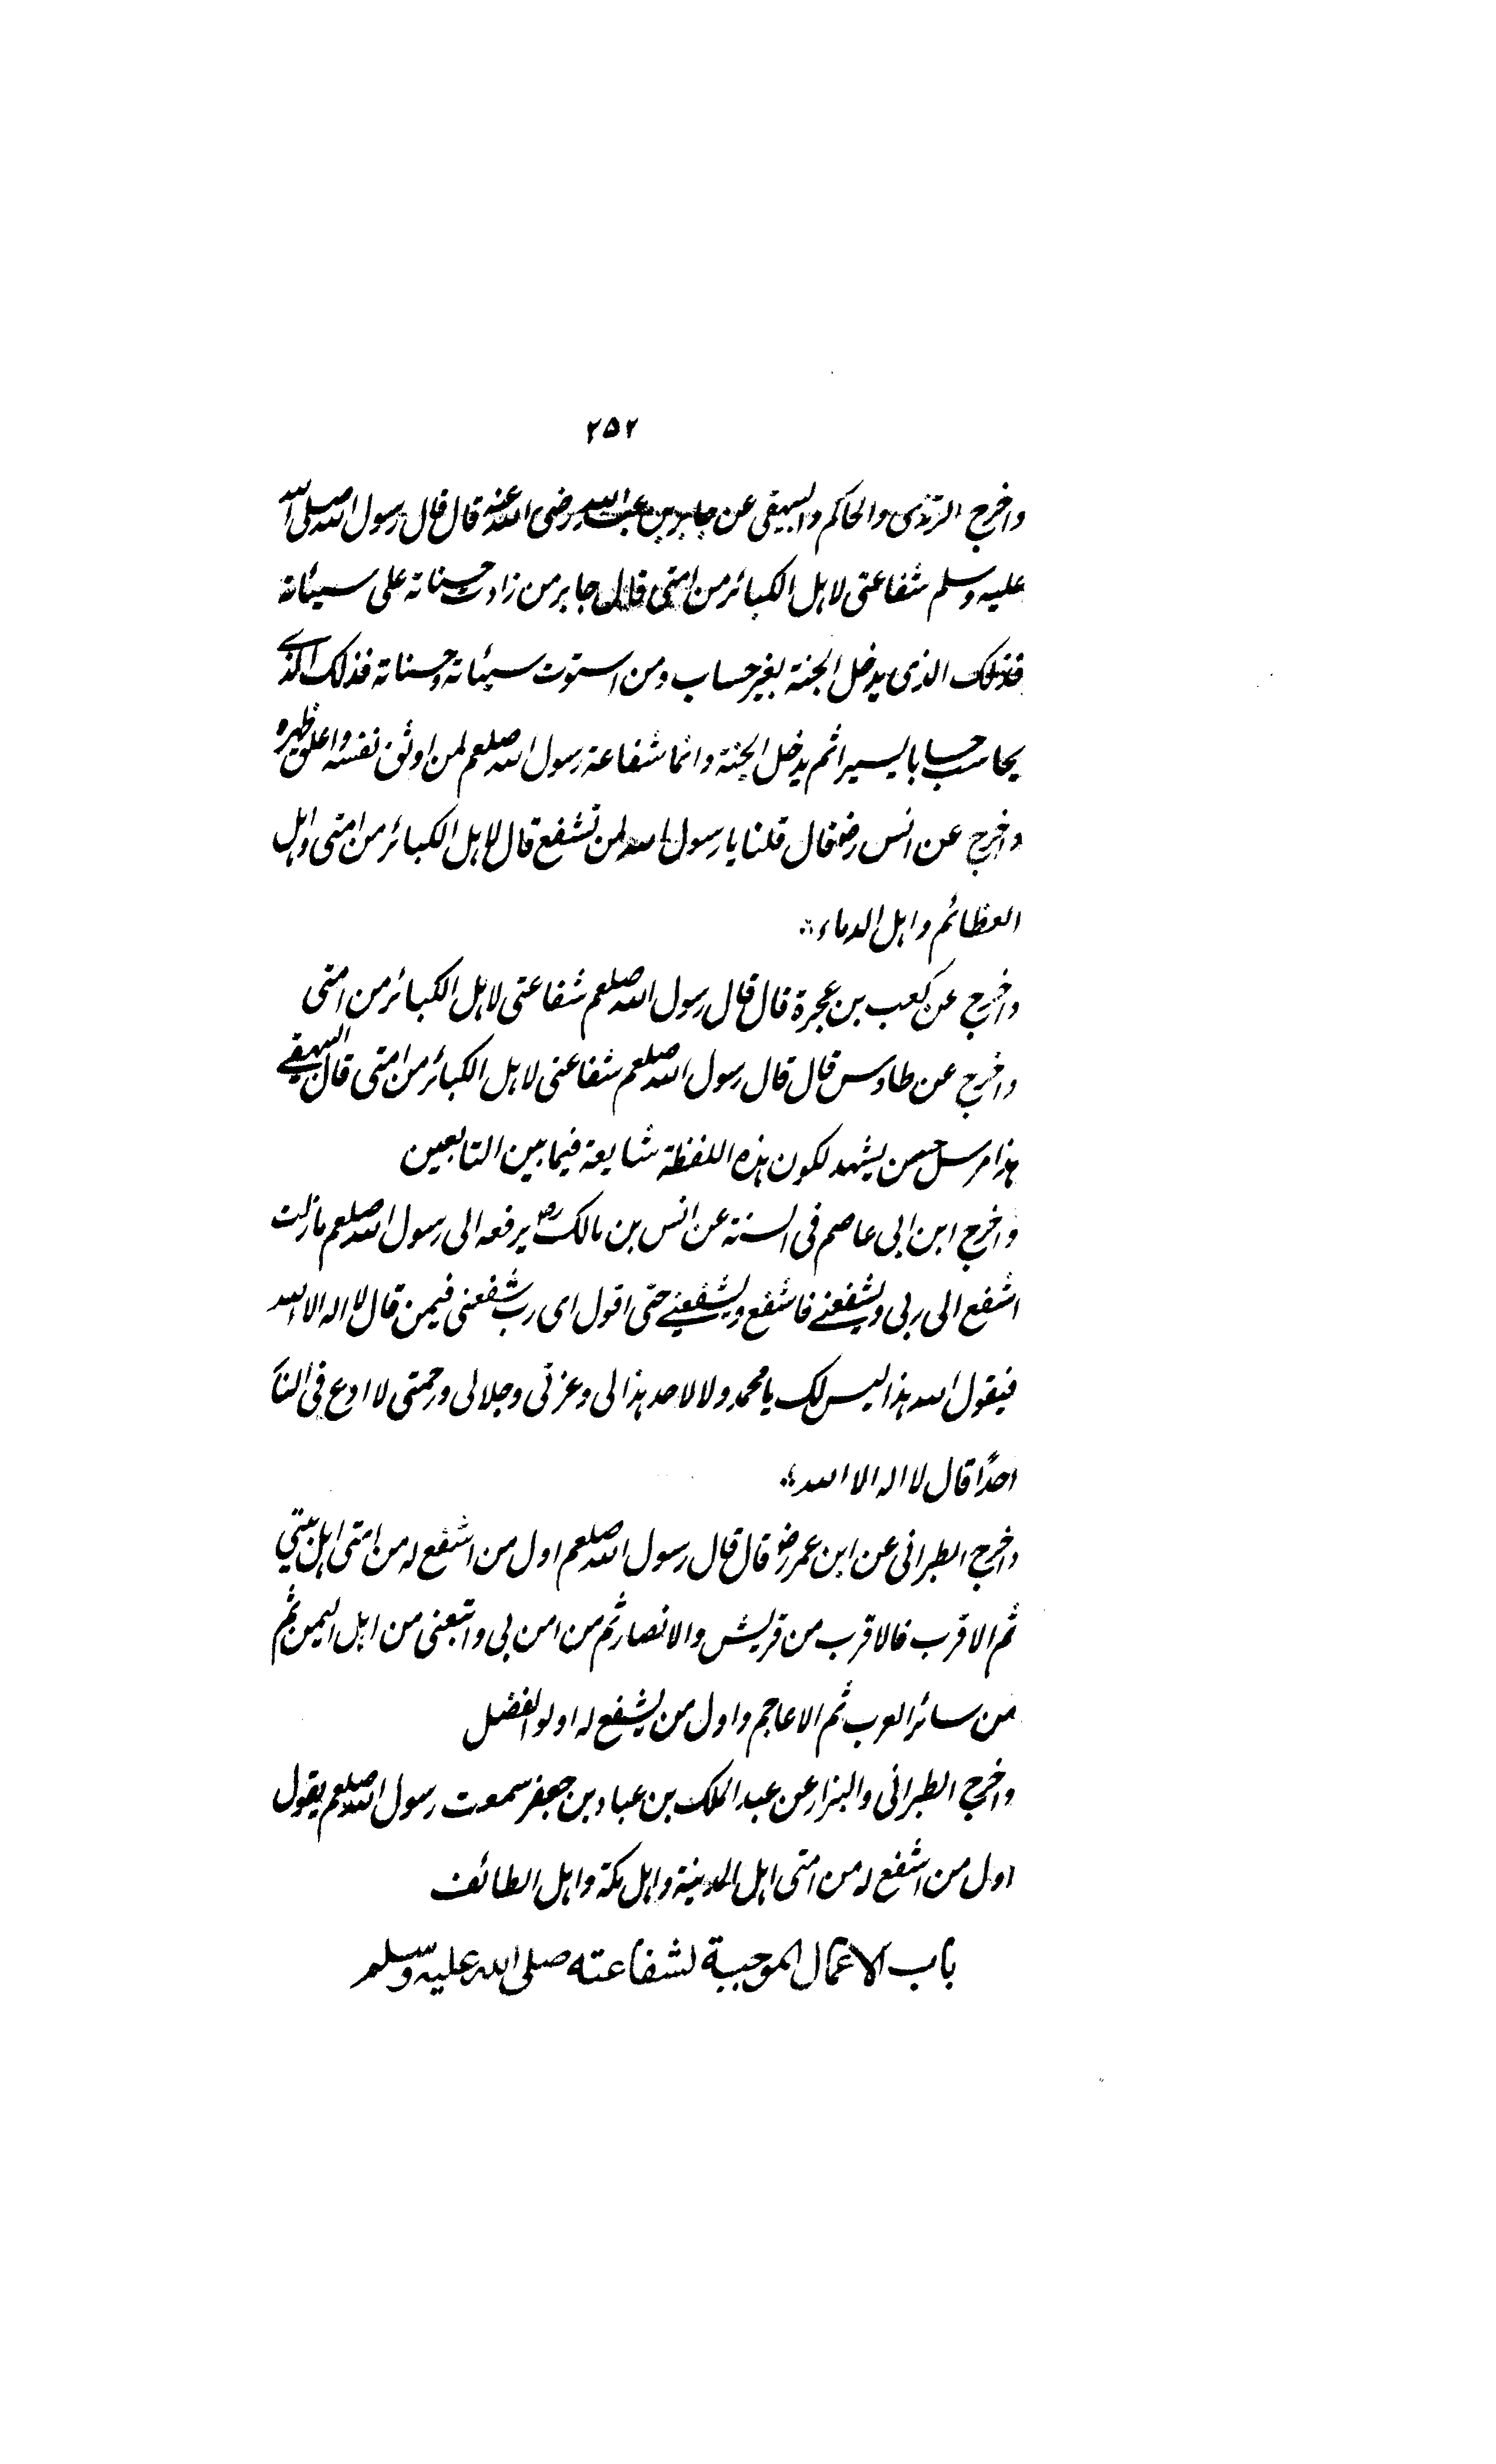 ۲۵۲
واخرج الترمذی والحاکم والبیہقی عن جابر بن عبداللہ رضی اللہ عنہ قال قال رسول اللہ صلی اللہ
علیہ وسلم شفاعتی لاہل الکبائر من امتی قال جابر من زادت حسناتہ علی سیئاتہ
فذلک الذی یدخل الجنۃ بغیر حساب ومن استوت سیئاتہ وحسناتہ فذلک الذے
یحاسب حسابا یسیرا ثم یدخل الجنۃ وانما شفاعۃ رسول اللہ صلعم لمن اوثق نفسہ واغلق ظہرہ
واخرج عن انس رضـ قال قلنا یا رسول اللہ لمن تشفع قال لاہل الکبائر من امتی واہل
العظائم واہل الدماء ؞
واخرج عن کعب بن عجرۃ قال قال رسول اللہ صلعم شفاعتی لاہل الکبائر من امتی
واخرج عن طاوس قال قال رسول اللہ صلعم شفاعتی لاہل الکبائر من امتی قال البیہقے
ہذا مرسل حسن یشہد لکون ہذہ اللفظۃ شایعۃ فیما بین التابعین
واخرج ابن ابی عاصم فی السنۃ عن انس بن مالک رضـ یرفعہ الی رسول اللہ صلعم ما زلت
اشفع الی ربی ویشفعنے فاشفع ویشفعنے حتی اقول ای رب شفعنی فیمن قال لا الہ الا اللہ
فیقول اللہ ہذا لیس لک یا محمد ولا لاحد ہذا لی وعزتی وجلالی ورحمتی لا ادع فی النا
احدًا قال لا الہ الا اللہ ؞
واخرج الطبرانی عن ابن عمر رضـ قال قال رسول اللہ صلعم اول من اشفع لہ من امتی اہل بیتی
ثم الاقرب فالاقرب من قریش والانصار ثم من امن بی واتبعنی من اہل الیمن ثم
من سائر العرب ثم الاعاجم واول من یشفع لہ اولو الفضل
واخرج الطبرانی والبزار عن عبد الملک بن عباد بن جعفر سمعت رسول اللہ صلعم یقول
اول من اشفع لہ من امتی اہل المدینۃ واہل مکۃ واہل الطائف
باب الاعمال الموجبة لشفاعته صلی الله علیه وسلم